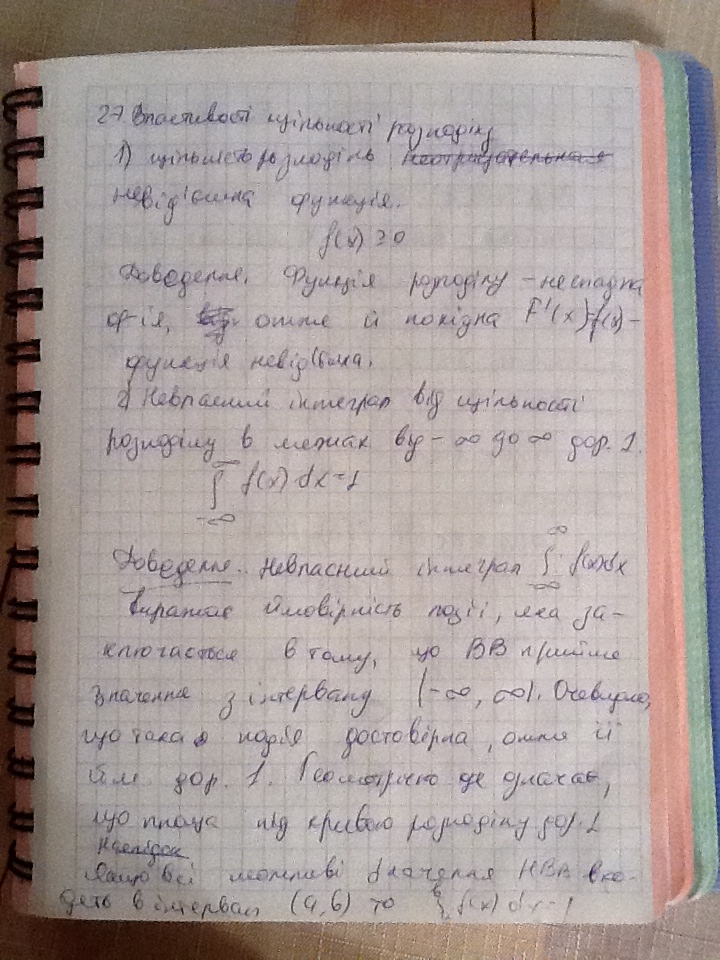 27 Властивості щільності розподілу
1) щільність розподілу
невід'ємна функція.
f(x) ≥ 0
Доведення. Функція розподілу – неспадна
ф-ія, отже її похідна F'(x)=f(x) –
функція невід'ємна.
2) Невласний інтеграл від щільності
розподілу в межах від -∞ до ∞ дор. 1.
∞
∫ f(x) dx = 1
-∞
Доведення. Невласний інтеграл ∫ f(x)dx
виражає ймовірність події, яка за-
ключається в тому, що ВВ прийме
значення з інтервалу (-∞, ∞). Очевидно,
що така подія достовірна, отже її
йм. дор. 1. Геометрично це означає,
що площа під кривою розподілу дор. 1
Якщо всі можливі значення НВВ
в інтервал (a, b) то ∫ f(x) dx = 1